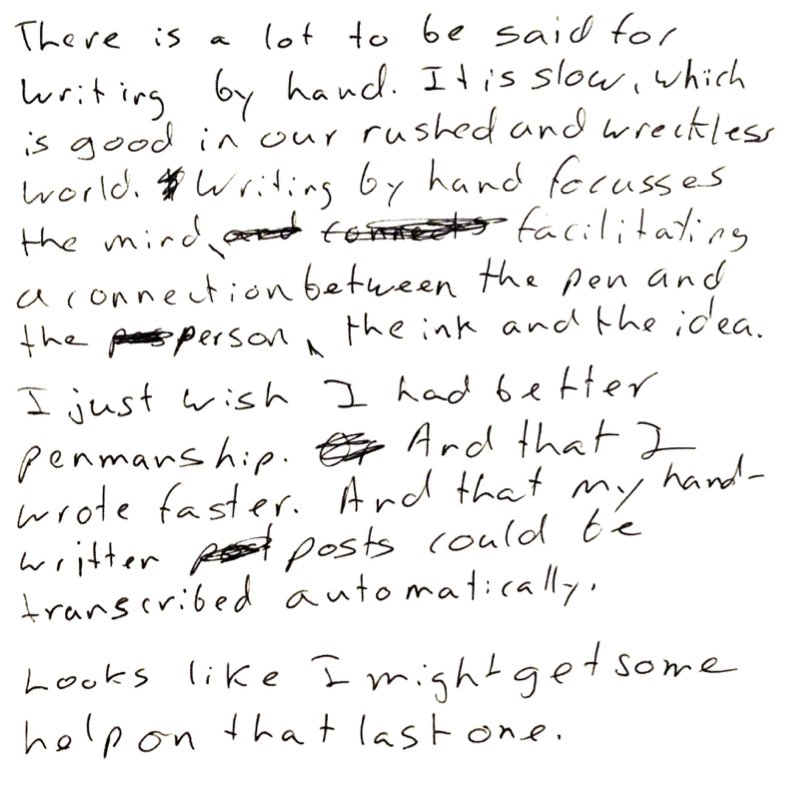 There is a lot to be said for
writing by hand. It is slow, which
is good in our rushed and wreckless
world. Writing by hand focusses
the mind, and connects facilitating
a connection between the pen and
the person, the ink and the idea.
I just wish I had better
penmanship. And that I
wrote faster. And that my hand-
written post posts could be
transcribed automatically.
Looks like I might get some
help on that last one.